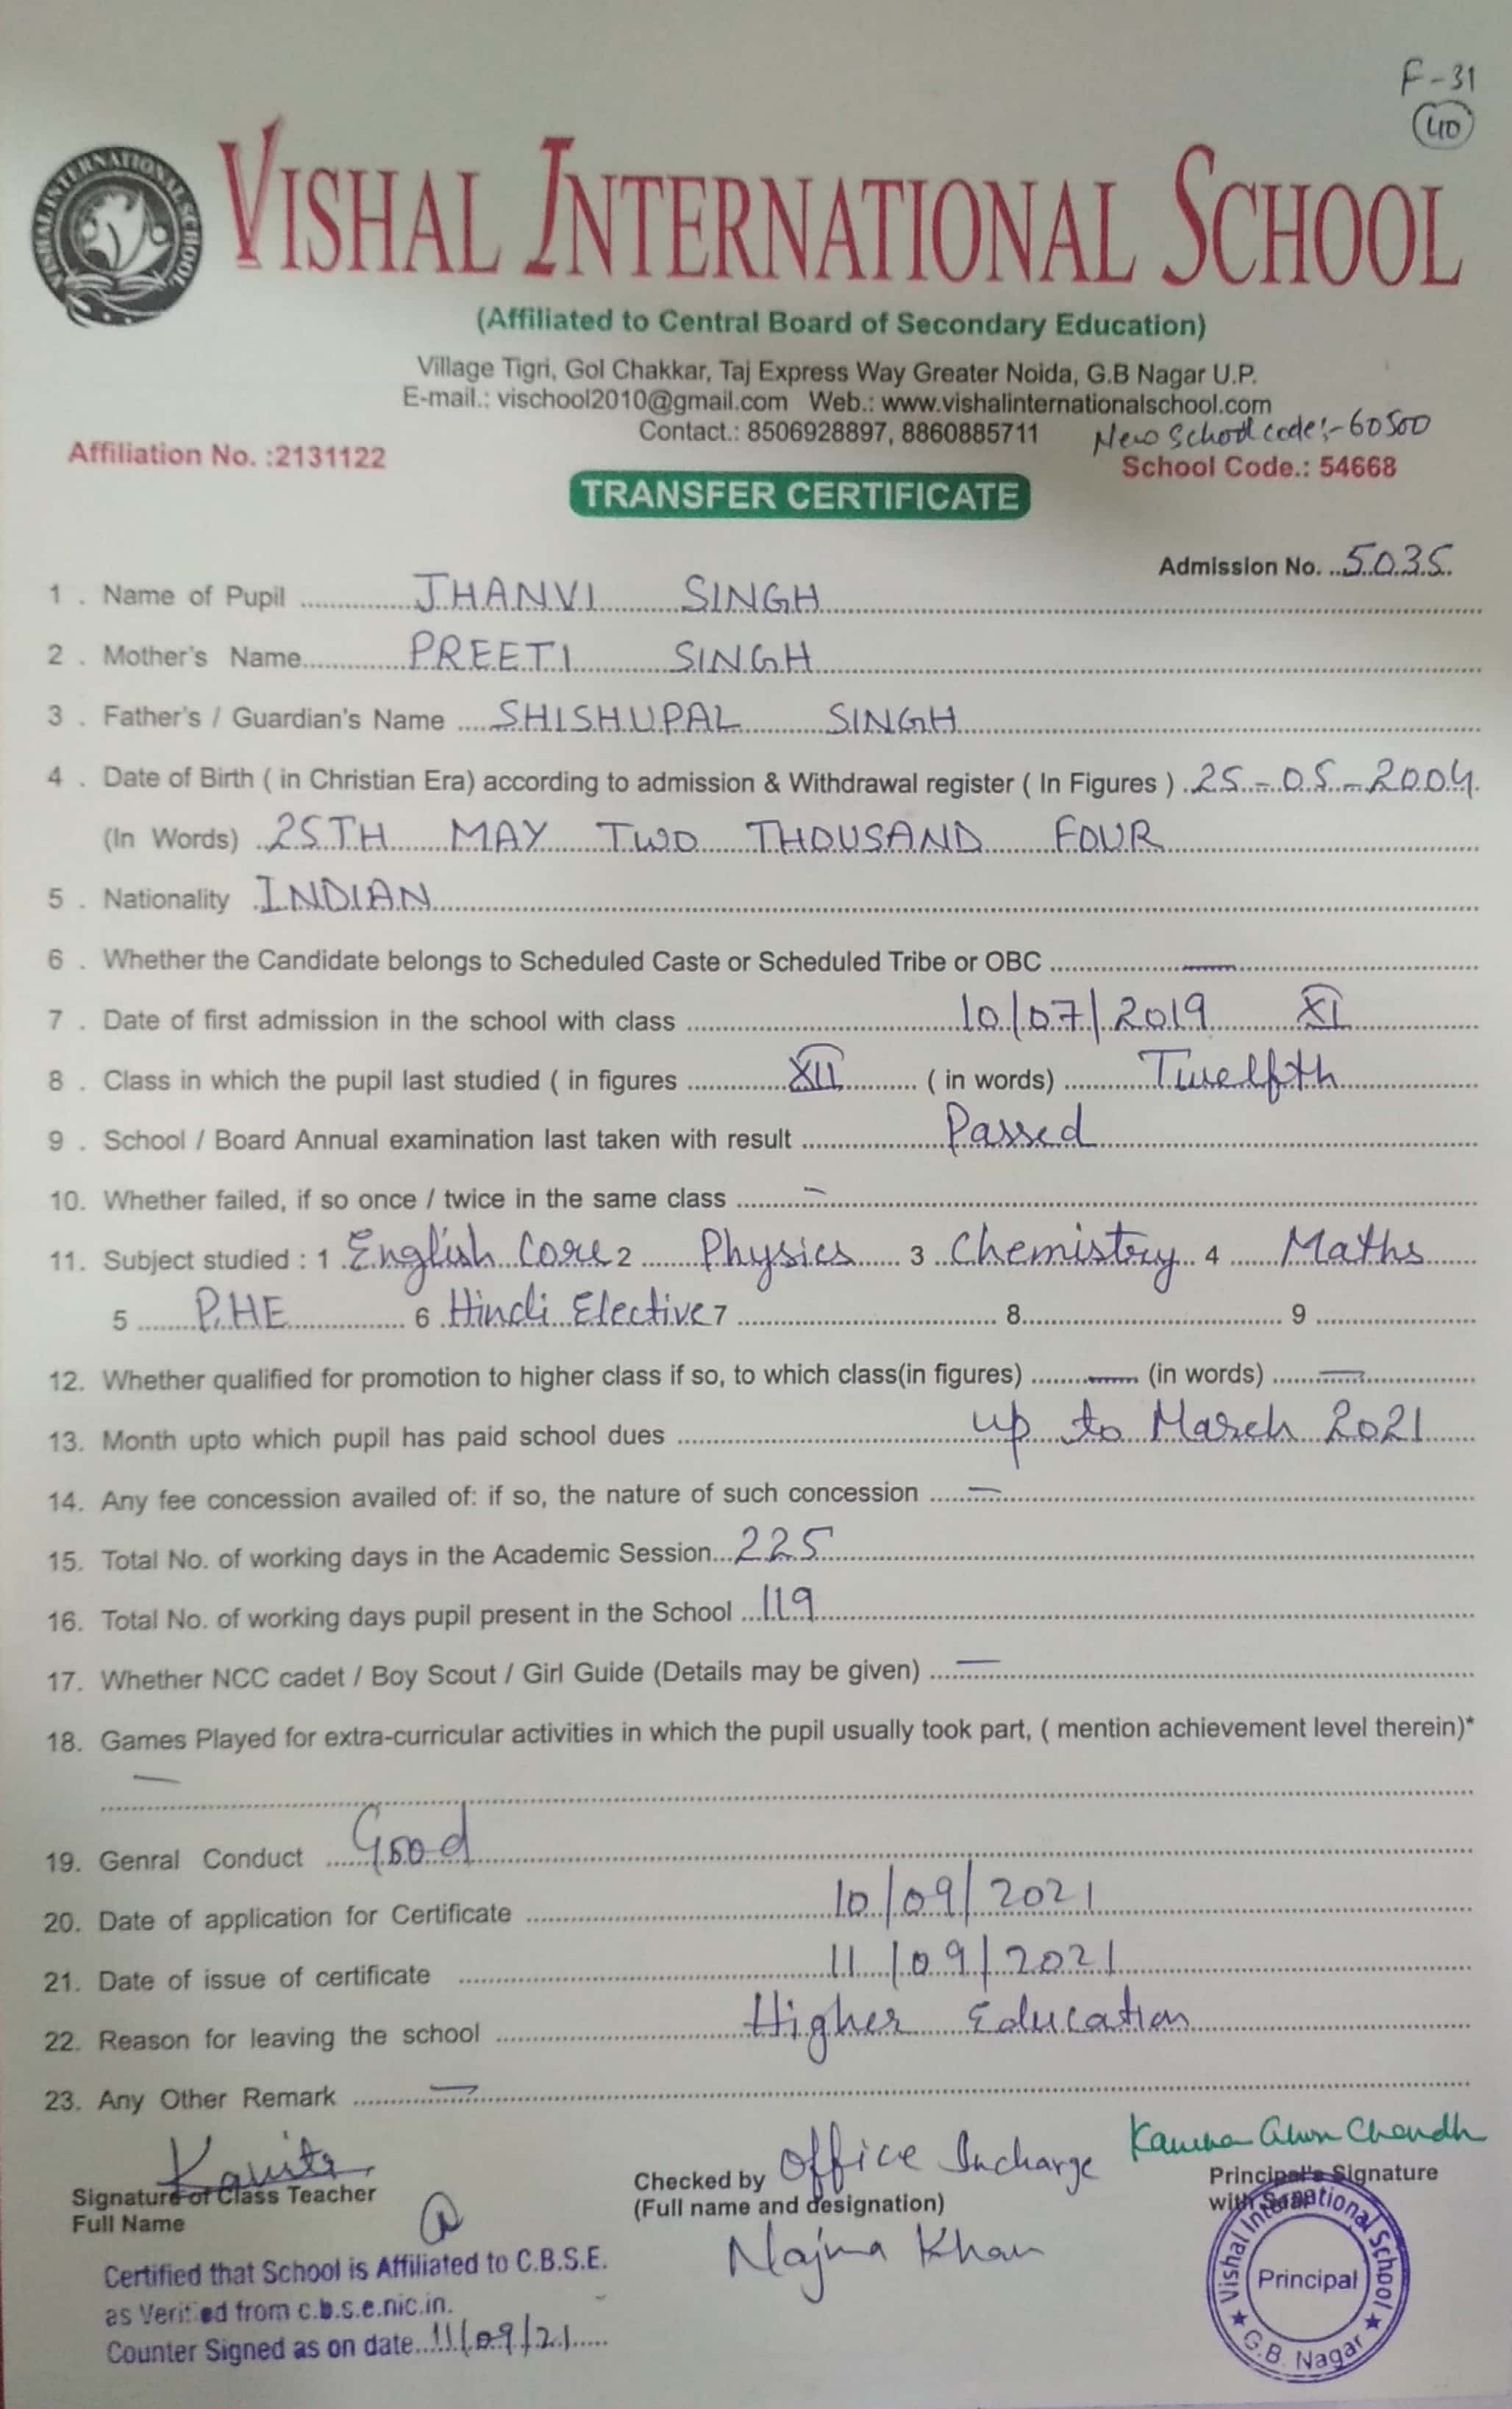 F-31
40
VISHAL INTERNATIONAL SCHOOL
VISHAL INTERNATIONAL SCHOOL
(Affiliated to Central Board of Secondary Education)
Village Tigri, Gol Chakkar, Taj Express Way Greater Noida, G.B Nagar U.P.
E-mail.: vischool2010@gmail.com Web.: www.vishalinternationalschool.com
Contact.: 8506928897, 8860885711 New School code:-60500
Affiliation No. :2131122 School Code.: 54668
TRANSFER CERTIFICATE
Admission No. 5035
1 . Name of Pupil JHANVI SINGH
2 . Mother's Name PREETI SINGH
3 . Father's / Guardian's Name SHISHUPAL SINGH
4 . Date of Birth ( in Christian Era) according to admission & Withdrawal register ( In Figures ) 25-05-2004
(In Words) 25TH MAY TWO THOUSAND FOUR
5 . Nationality INDIAN
6 . Whether the Candidate belongs to Scheduled Caste or Scheduled Tribe or OBC —
7 . Date of first admission in the school with class 10/07/2019 XI
8 . Class in which the pupil last studied ( in figures XII ( in words) Twelfth
9 . School / Board Annual examination last taken with result Passed
10. Whether failed, if so once / twice in the same class —
11. Subject studied : 1 English Core 2 Physics 3 Chemistry 4 Maths
5 P.HE 6 Hindi Elective 7 8 9
12. Whether qualified for promotion to higher class if so, to which class(in figures) — (in words) —
13. Month upto which pupil has paid school dues up to March 2021
14. Any fee concession availed of: if so, the nature of such concession —
15. Total No. of working days in the Academic Session 225
16. Total No. of working days pupil present in the School 119
17. Whether NCC cadet / Boy Scout / Girl Guide (Details may be given) —
18. Games Played for extra-curricular activities in which the pupil usually took part, ( mention achievement level therein)*
—
19. Genral Conduct Good
20. Date of application for Certificate 10/09/2021
21. Date of issue of certificate 11/09/2021
22. Reason for leaving the school Higher Education
23. Any Other Remark —
Kavita
Signature of Class Teacher
Full Name
Checked by Office Incharge
(Full name and designation)
Najma Khan
Principal's Signature
with Seal
Vishal International School
Principal
G.B. Nagar
Certified that School is Affiliated to C.B.S.E.
as Verified from c.b.s.e.nic.in.
Counter Signed as on date 11/09/21